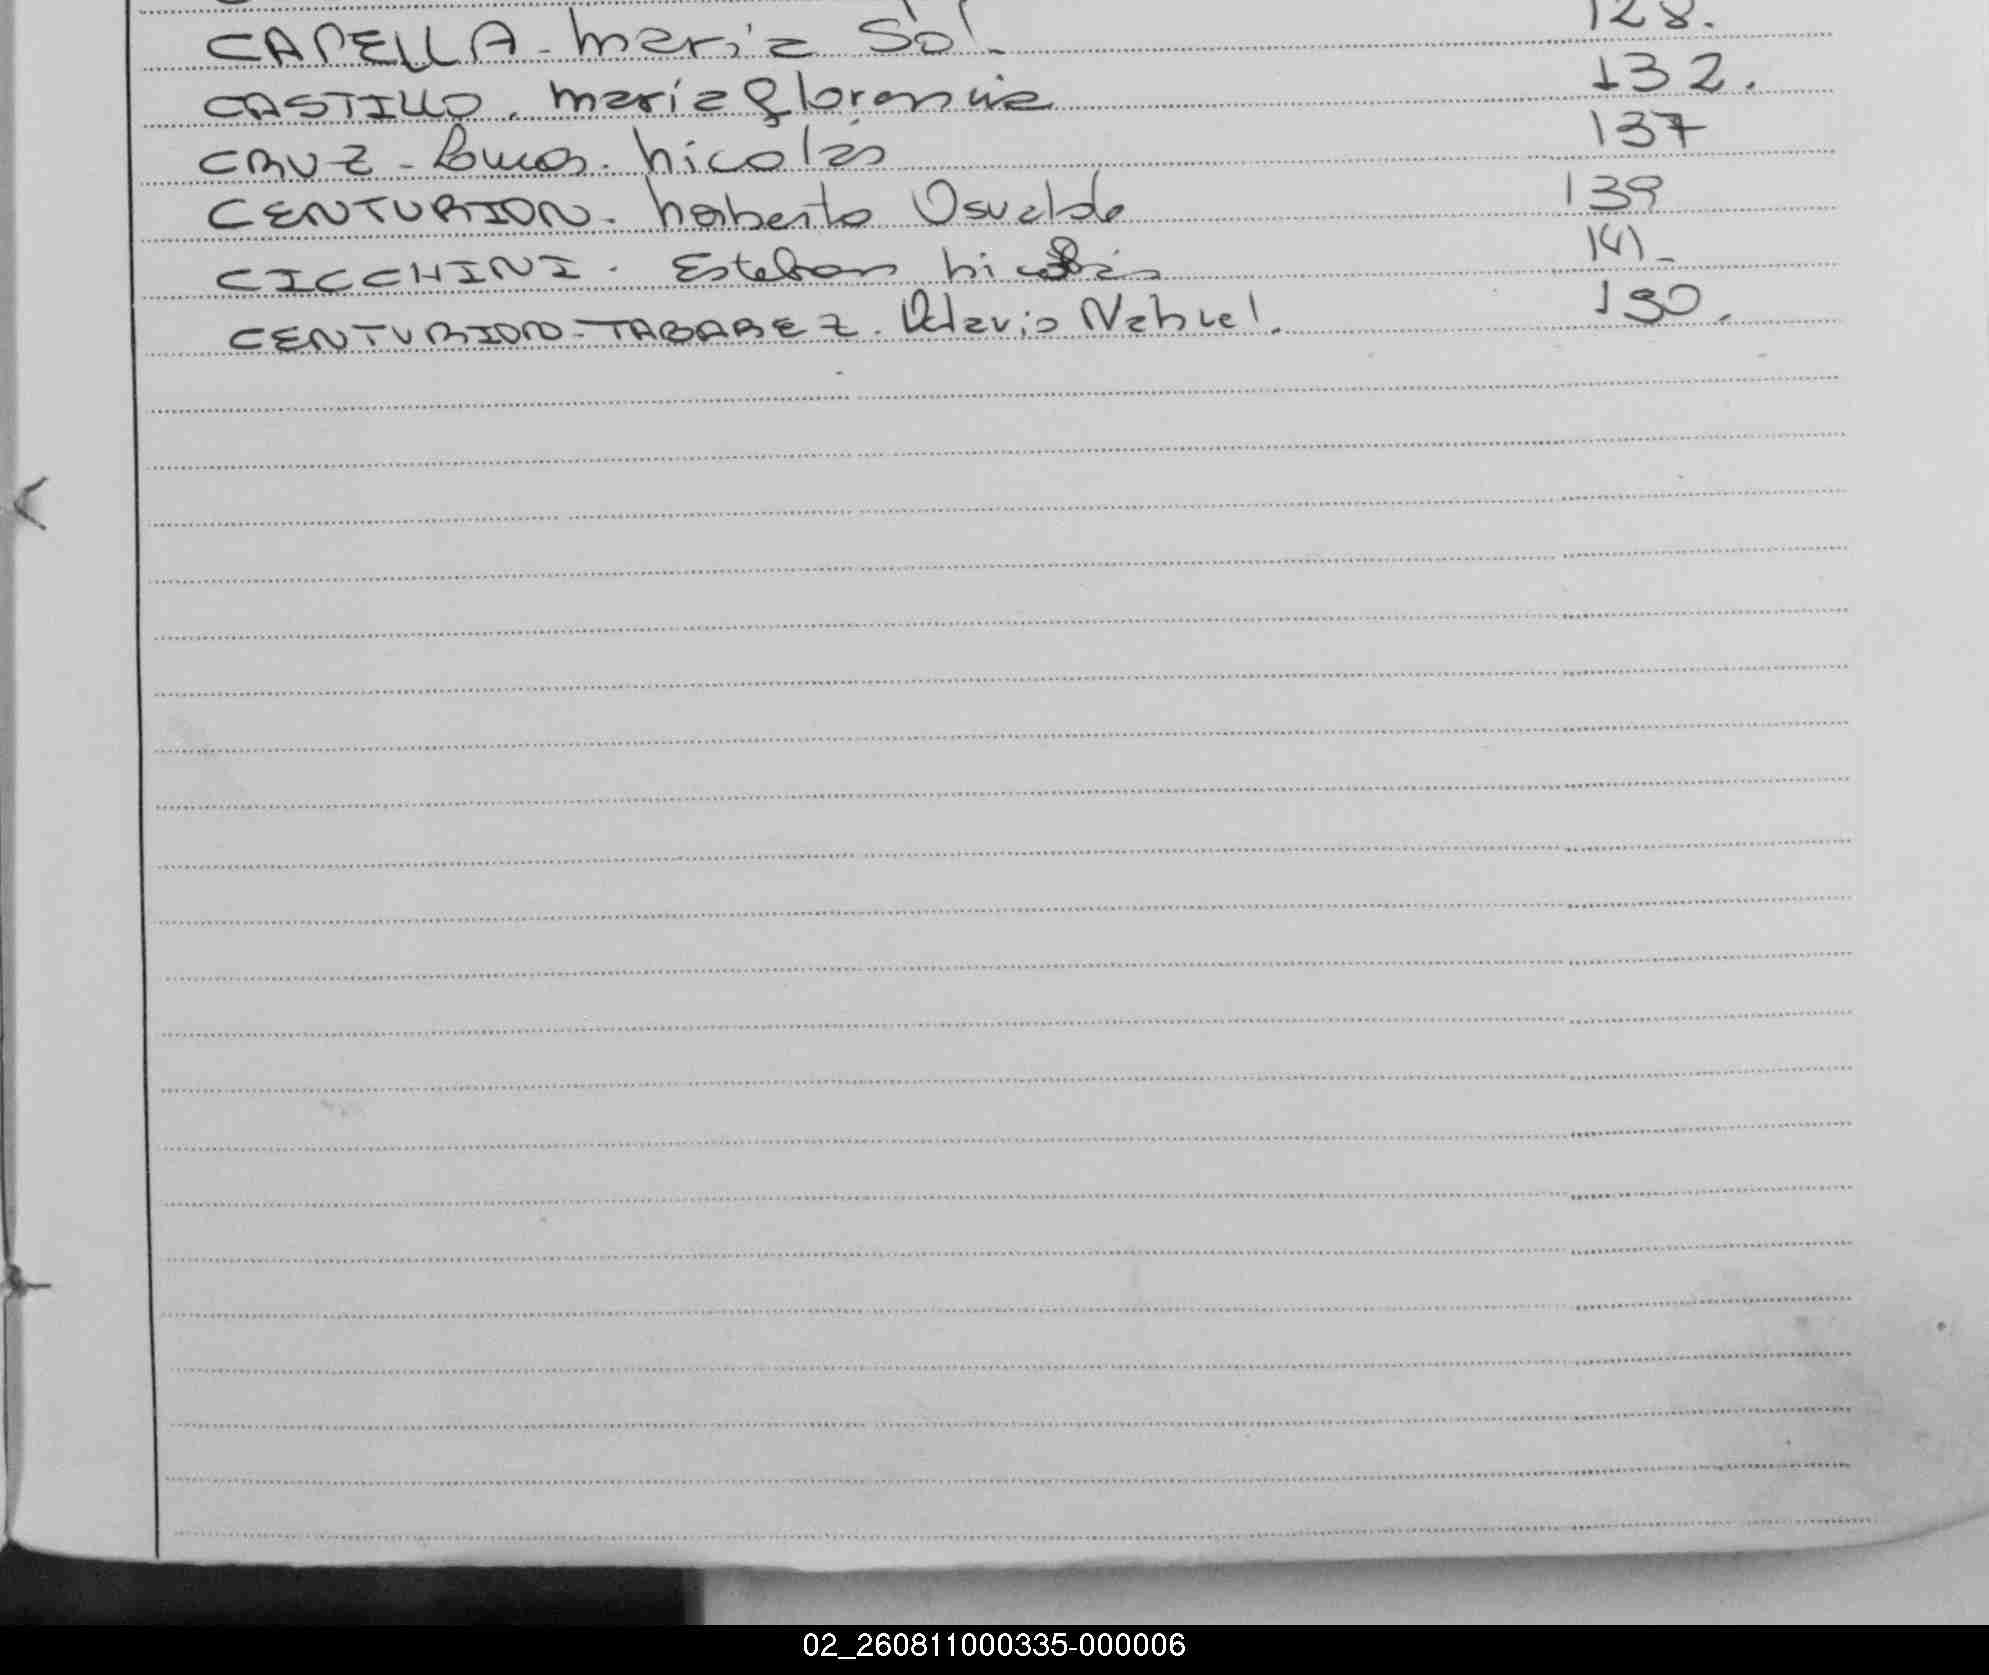 CAPELLA - Maria Sol. 128.
CASTILLO. Maria Florencia 132.
CRUZ - Lucas. Nicolás 137
CENTURION - Norberto Osvaldo 139
CICCHINI. Esteban Nicolás 141-
CENTURION-TABAREZ. Octavio Nahuel. 150.
02_260811000335-000006